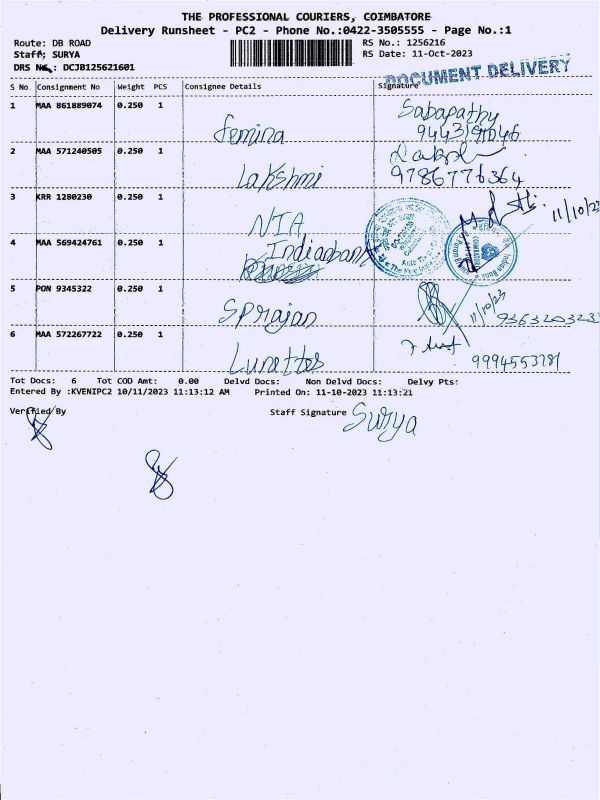 THE PROFESSIONAL COURIERS, COIMBATORE
Delivery Runsheet - PC2 - Phone No.:0422-3505555 - Page No.:1
Route: DB ROAD
RS No.: 1256216
Staff: SURYA
RS Date: 11-Oct-2023
DRS No.: DCJB125621601
DOCUMENT DELIVERY
S No Consignment No Weight PCS Consignee Details Signature
1 MAA 861889074 0.250 1 Femina Sabapathy
2 MAA 571240505 0.250 1 Lakshmi 9786776364
3 KRR 1280230 0.250 1 NIA 11/10/23
4 MAA 569424761 0.250 1 Indianbank
5 PON 9345322 0.250 1 Sprajan 11/10/23 9363203231
6 MAA 572267722 0.250 1 Lunettes 9994553781
Tot Docs: 6 Tot COD Amt: 0.00 Delvd Docs: Non Delvd Docs: Delvy Pts:
Entered By :KVENIPC2 10/11/2023 11:13:12 AM Printed On: 11-10-2023 11:13:21
Verified By Staff Signature Surya